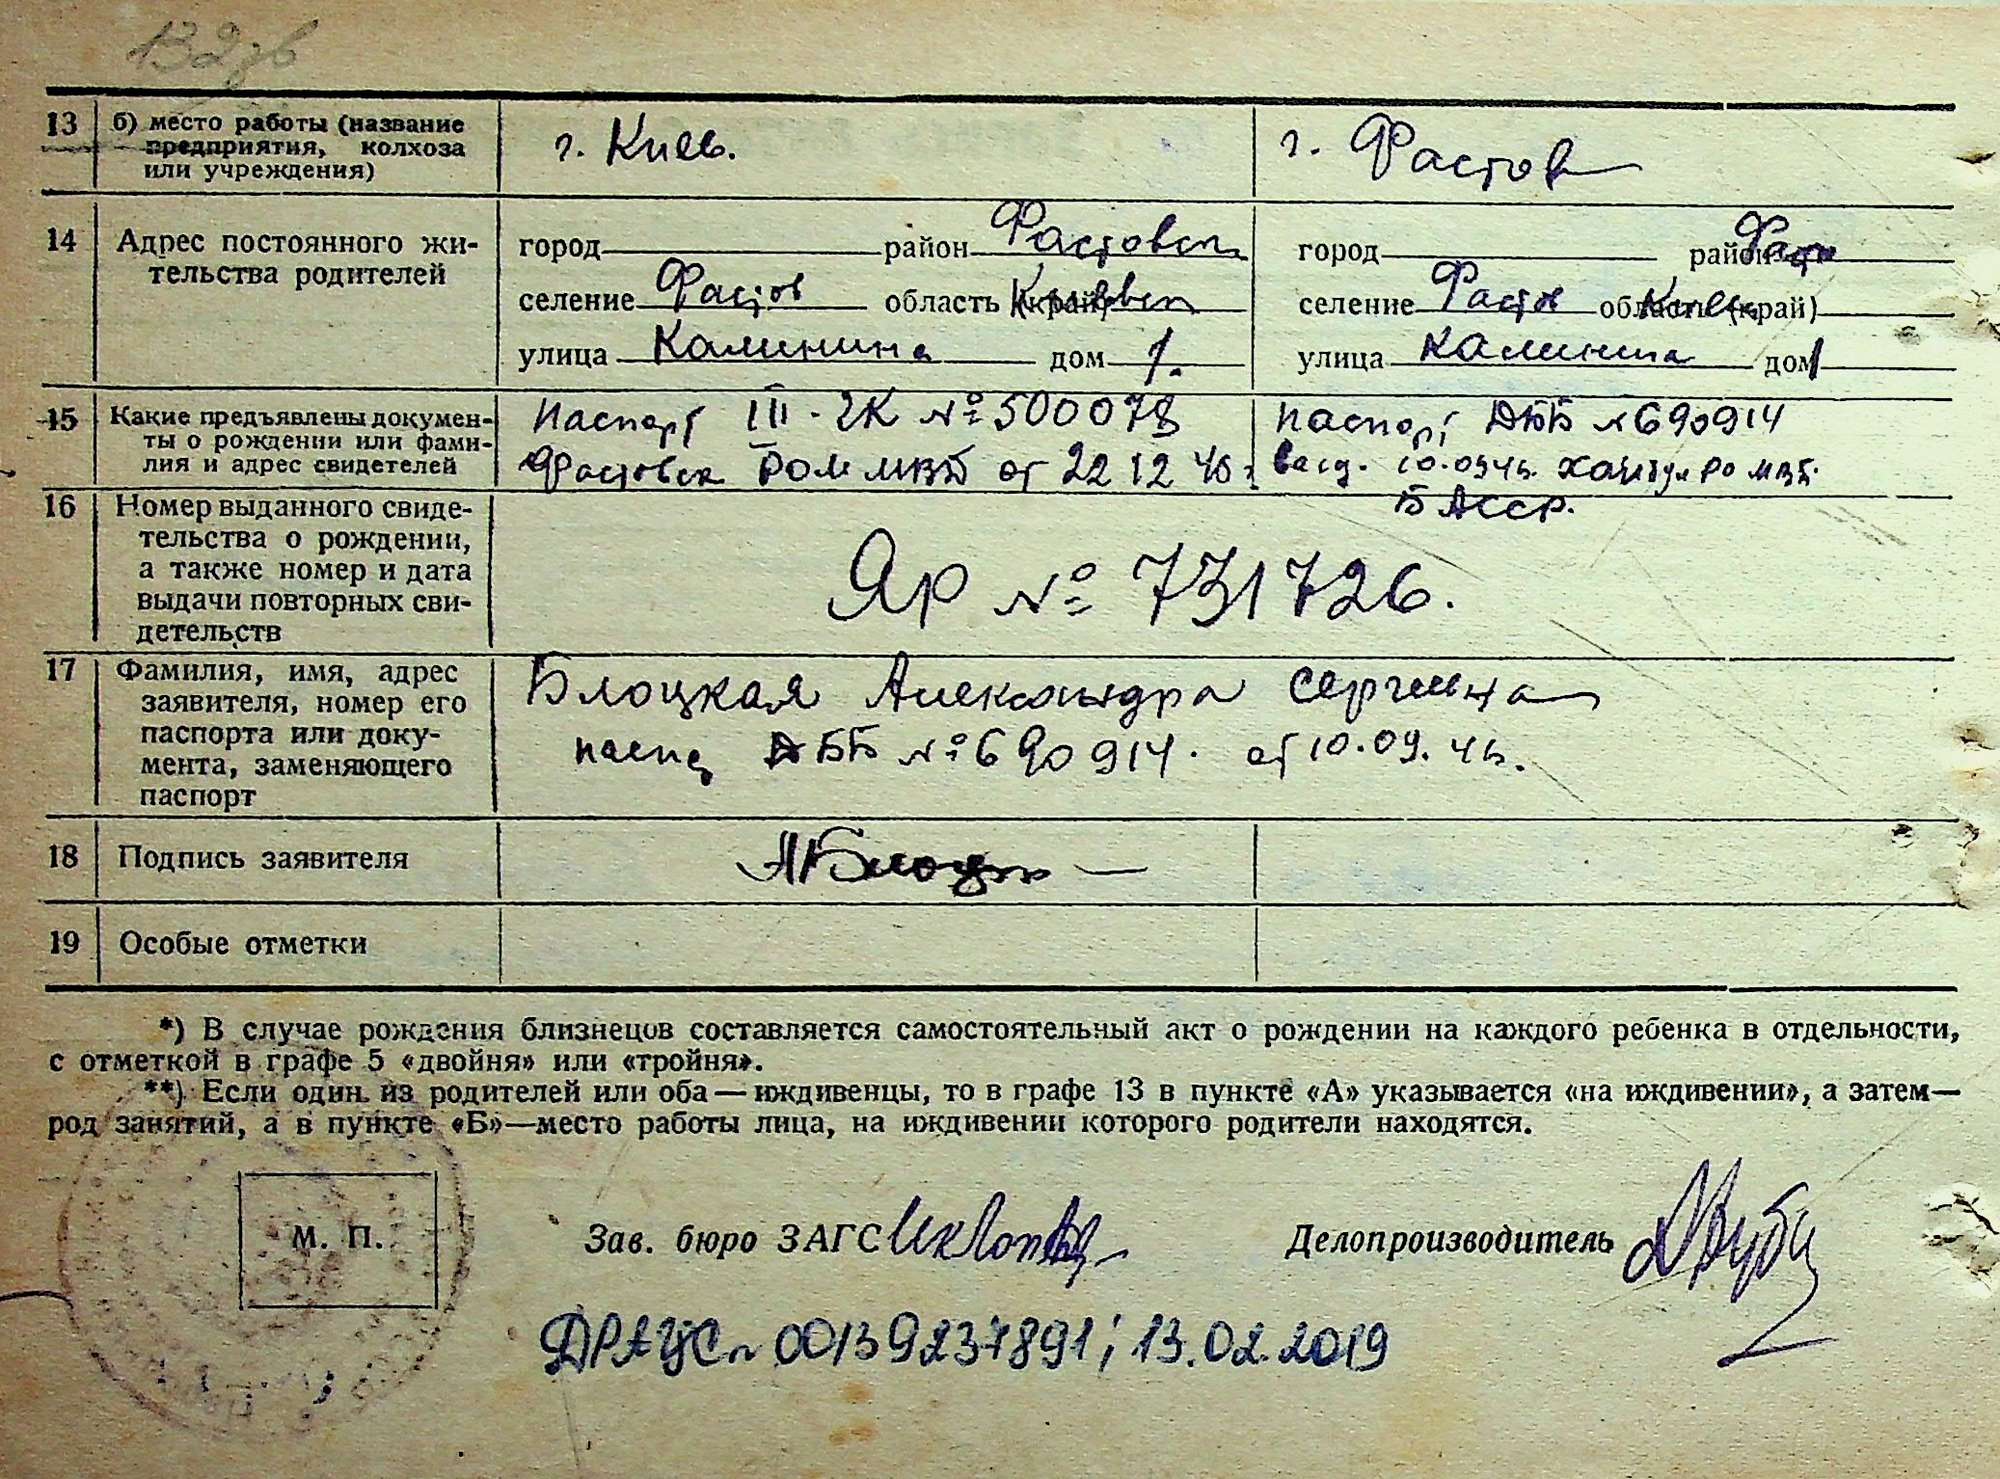 13 б) место работы (название предприятия, колхоза или учреждения) г. Киев. г. Фастов
14 Адрес постоянного жительства родителей
город район Фастовск город район Фаст
селение Фастов область (край) Киевск селение Фастов область (край) Киевск
улица Калинина дом 1. улица Калинина дом 1
15 Какие предъявлены документы о рождении или фамилия и адрес свидетелей
Паспорт III-ЧК № 500078 Паспорт ДББ № 690914
Фастовск РОМ МВД от 22 12 46 г. 10.09.46. РО МВД
БАССР.
16 Номер выданного свидетельства о рождении, а также номер и дата выдачи повторных свидетельств
ЯР № 731726.
17 Фамилия, имя, адрес заявителя, номер его паспорта или документа, заменяющего паспорт
Блоцкая Александра Сергеевна
пасп ДББ № 690914. от 10.09.46.
18 Подпись заявителя АБлоцк
19 Особые отметки
*) В случае рождения близнецов составляется самостоятельный акт о рождении на каждого ребенка в отдельности,
с отметкой в графе 5 «двойня» или «тройня».
**) Если один из родителей или оба — иждивенцы, то в графе 13 в пункте «А» указывается «на иждивении», а затем—
род занятий, а в пункте «Б»—место работы лица, на иждивении которого родители находятся.
М. П. Зав. бюро ЗАГС Делопроизводитель
ДРАЦСг 00139237891; 13.02.2019